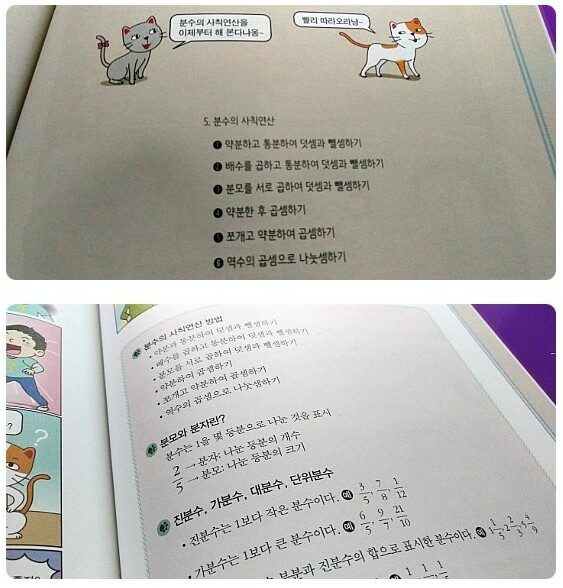 분수의 사칙연산을
이제부터 해 본다냐옹~
빨리 따라오라냥~
5. 분수의 사칙연산
❶ 약분하고 통분하여 덧셈과 뺄셈하기
❷ 배수를 곱하고 통분하여 덧셈과 뺄셈하기
❸ 분모를 서로 곱하여 덧셈과 뺄셈하기
❹ 약분한 후 곱셈하기
❺ 쪼개고 약분하여 곱셈하기
❻ 역수의 곱셈으로 나눗셈하기
분수의 사칙연산 방법
• 약분과 통분하여 덧셈과 뺄셈하기
• 배수를 곱하고 통분하여 덧셈과 뺄셈하기
• 분모를 서로 곱하여 덧셈과 뺄셈하기
• 약분하여 곱셈하기
• 쪼개고 약분하여 곱셈하기
• 역수의 곱셈으로 나눗셈하기
분모와 분자란?
분수는 1을 몇 등분으로 나눈 것을 표시
2 → 분자: 나눈 등분의 개수
5 → 분모: 나눈 등분의 크기
진분수, 가분수, 대분수, 단위분수
• 진분수는 1보다 작은 분수이다. 예 3/5, 7/8, 1/12
• 가분수는 1보다 큰 분수이다. 예 6/5, 9/7, 21/10
부분과 진분수의 합으로 표시한 분수이다. 예